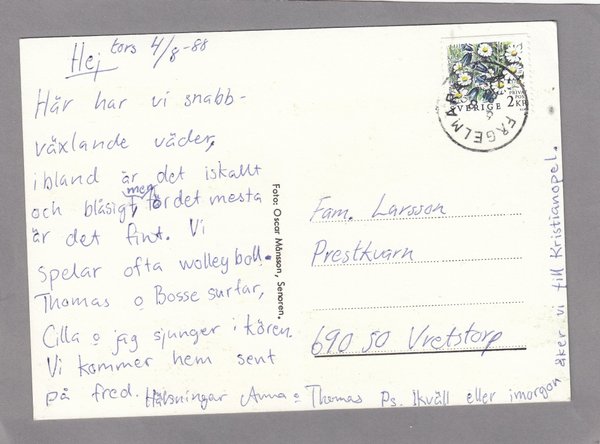 Hej tors 4/8-88
Här har vi snabb-
växlande väder,
ibland är det iskallt
och blåsigt, men för det mesta
är det fint. Vi
spelar ofta wolleyboll.
Thomas o Bosse surfar,
Cilla o jag sjunger i kören.
Vi kommer hem sent
på fred. Hälsningar Anna o Thomas Ps. Ikväll eller imorgon
åker vi till Kristianopel.
Foto: Oscar Månsson, Senoren.
SVERIGE 2 KR
FÅGELMARA
Fam. Larsson
Prestkvarn
690 50 Vretstorp